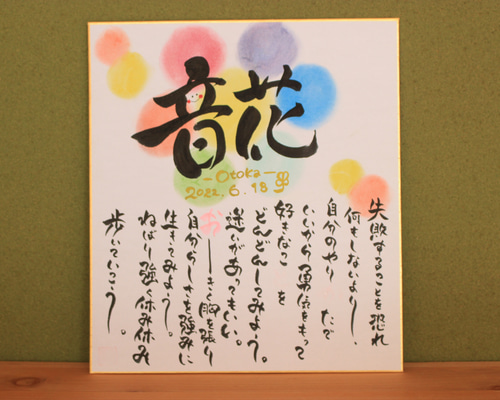 音花
-Otoka-
2022.6.18
失敗することを恐れ
何もしないより、
自分のやり たで
いいから勇気をもって
好きなこ を
どんどんしてみよう。
迷いがあってもいい。
お――きく胸を張り
自分らしさを強みに
生きてみよう。
ねばり強く休み休み
歩いていこう。